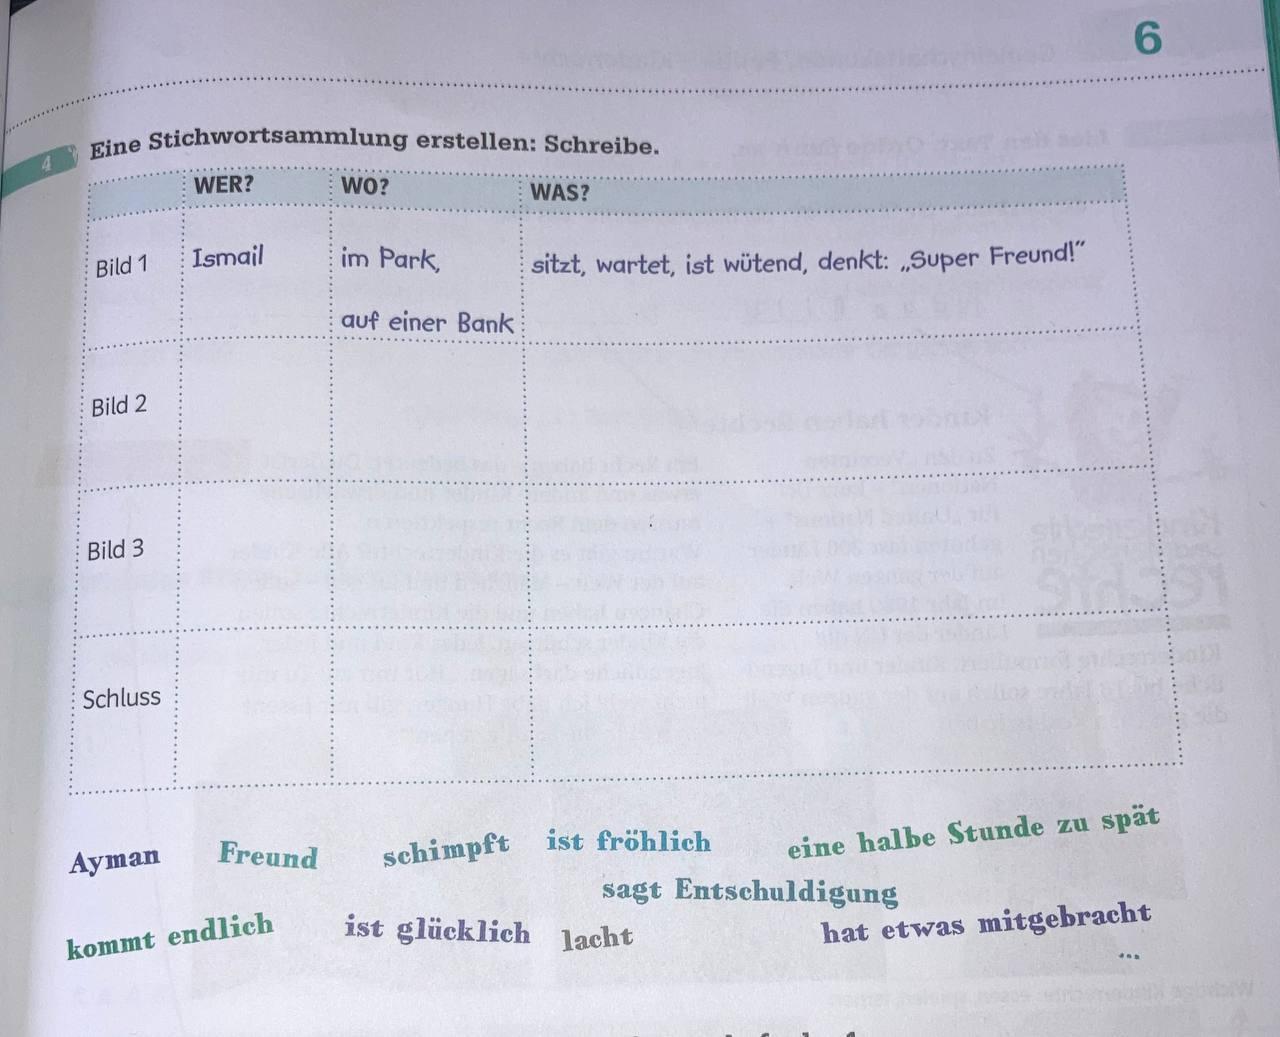 6
4 Eine Stichwortsammlung erstellen: Schreibe.
WER? WO? WAS?
Bild 1 Ismail im Park, sitzt, wartet, ist wütend, denkt: „Super Freund!“
auf einer Bank
Bild 2
Bild 3
Schluss
Ayman Freund schimpft ist fröhlich eine halbe Stunde zu spät
sagt Entschuldigung
kommt endlich ist glücklich lacht hat etwas mitgebracht
...